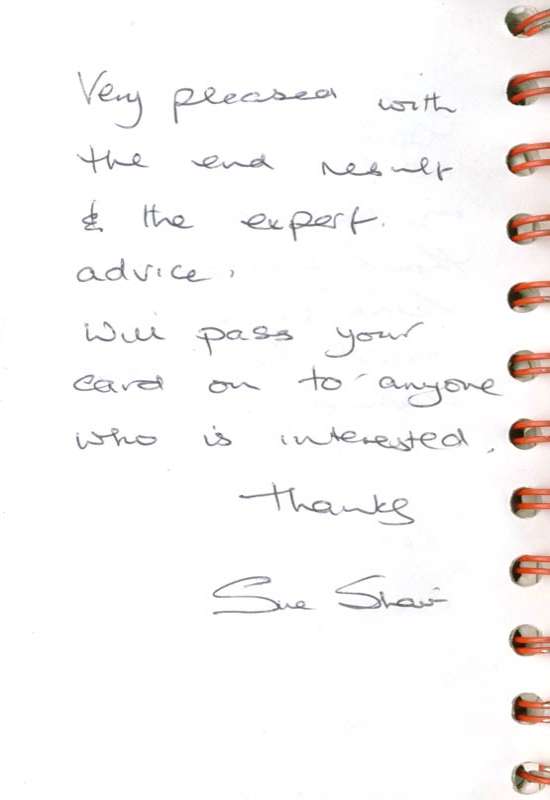 Very pleased with
the end result
& the expert.
advice.
Will pass your
card on to anyone
who is interested.
Thanks
Sue Shaw